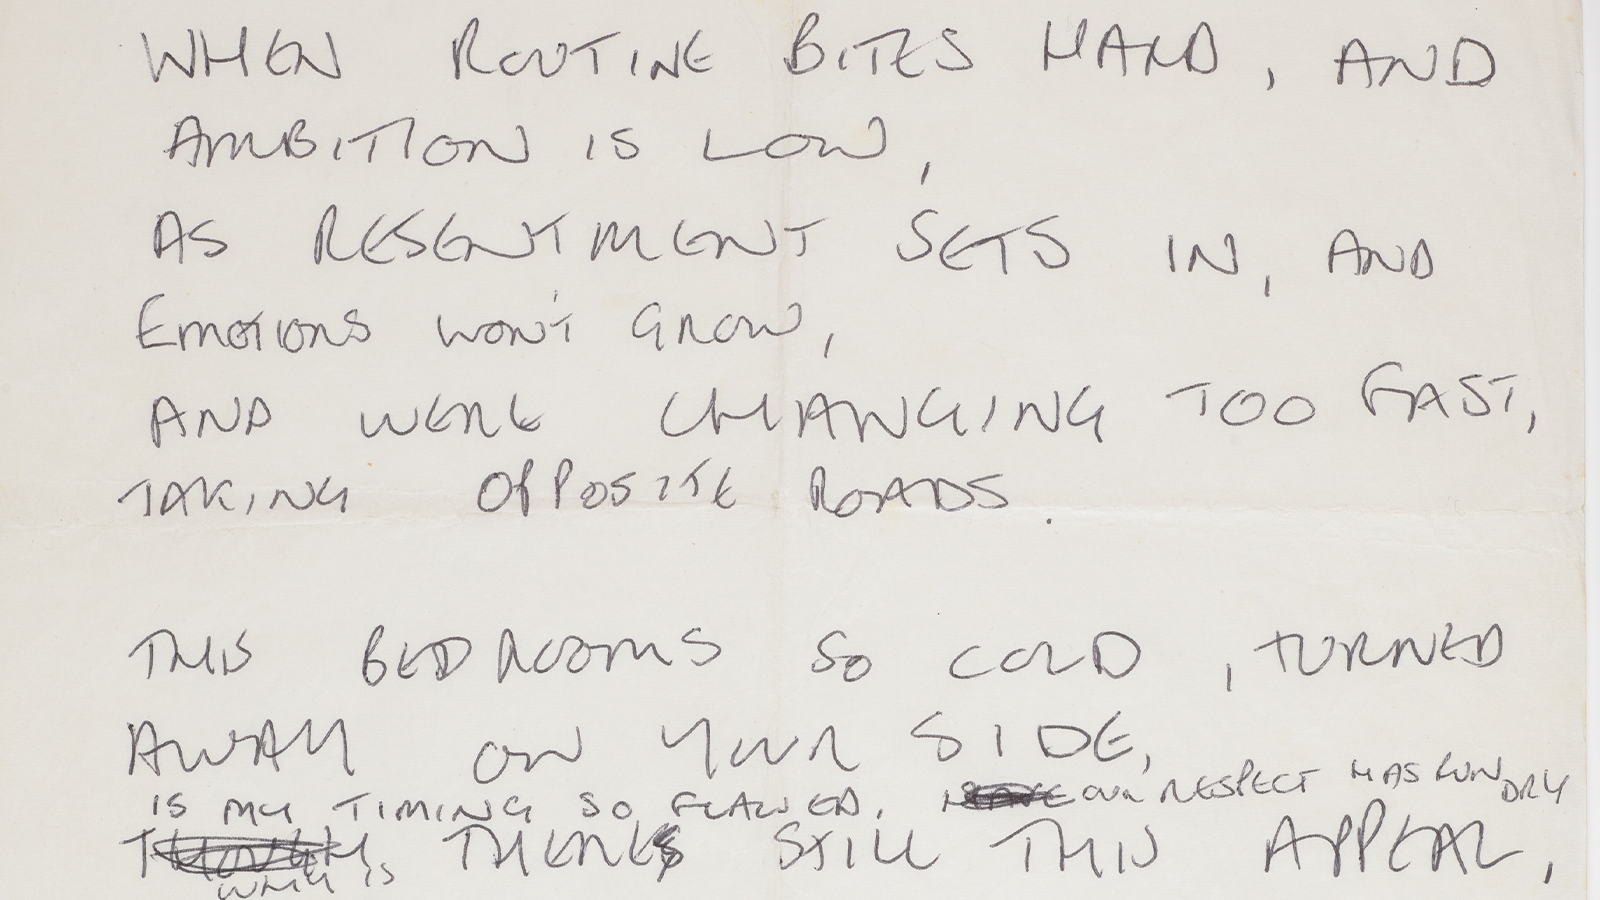 WHEN ROUTINE BITES HARD, AND
AMBITION IS LOW,
AS RESENTMENT SETS IN, AND
EMOTIONS WON'T GROW,
AND WERE CHANGING TOO FAST,
TAKING OPPOSITE ROADS.
THIS BEDROOMS SO COLD, TURNED
AWAY ON YOUR SIDE,
IS MY TIMING SO FLAWED. OUR RESPECT HAS RUN DRY
THERES STILL THIS APPEAL,
WHY IS